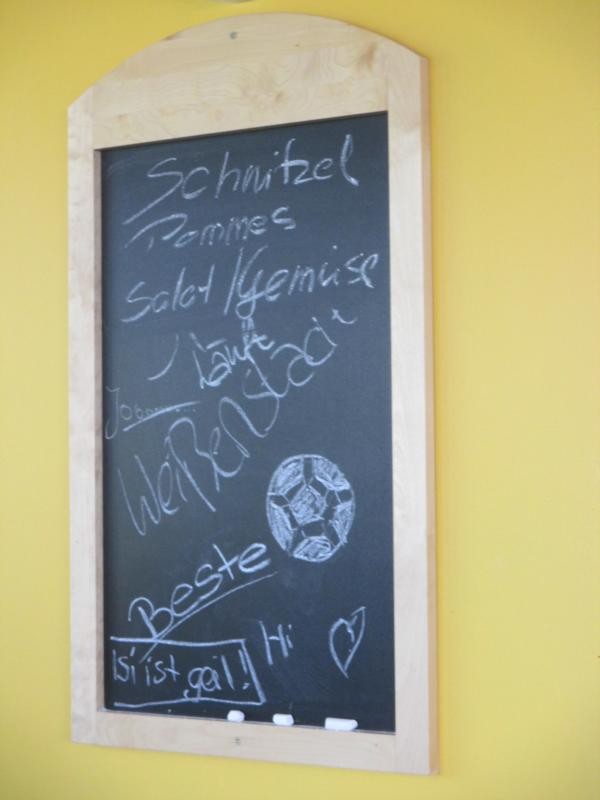 Schnitzel
Pommes
Salat/Gemüse
Läuft
Weißenstadt
Beste
Isi ist geil!
Hi